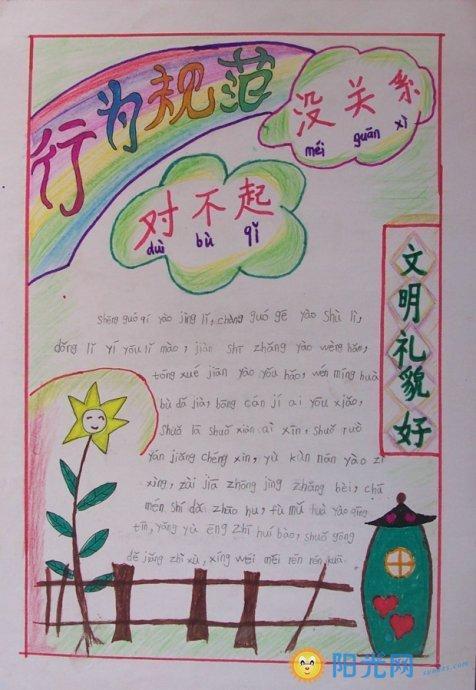 行为规范
没关系
méi guān xì
对不起
duì bù qǐ
文明礼貌好
shēng guó qí yào jìng lǐ, chàng guó gē yào shù lì,
dǒng lǐ yí yǒu lǐ mào, jiàn shī zhǎng yào wèng hǎn,
tóng xué jiān yào yǒu hǎo, wén míng huà
bù dǎ jià, bāng cán jí ài yòu xiǎo,
yán jiǎng chéng xìn, yù kùn nán yào zì
xìng, zài jiā zhōng jìng zhǎng bèi, chū
mén shí dǎ zhāo hu, fù mǔ huà yào qīng
tīn, yǎng yù ēng zhī huí bào,
xíng wéi měi rén rén kuā.
阳光网